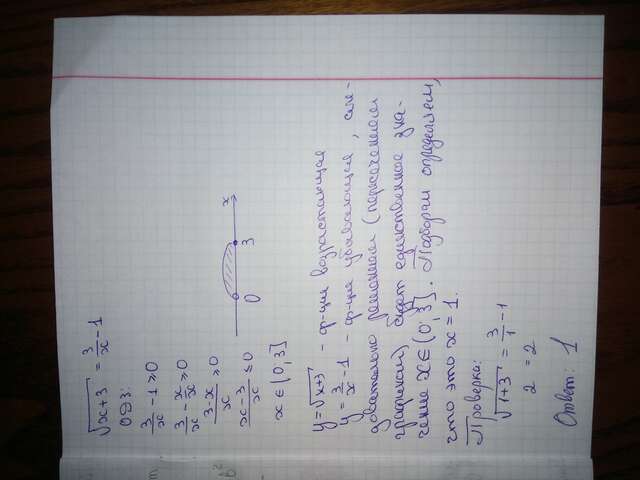 √(x+3) = 3/x - 1
ОДЗ:
3/x - 1 ≥ 0
3/x - x/x ≥ 0
(3-x)/x ≥ 0
(x-3)/x ≤ 0
0 3 x
x ∈ (0; 3]
y = √(x+3) - ф-ция возрастающая
y = 3/x - 1 - ф-ция убывающая, сле-
довательно решением (пересечением
графиков) будет единственное зна-
чение x ∈ (0; 3]. Подбором определяем,
что это x = 1.
Проверка:
√(1+3) = 3/1 - 1
2 = 2
Ответ: 1